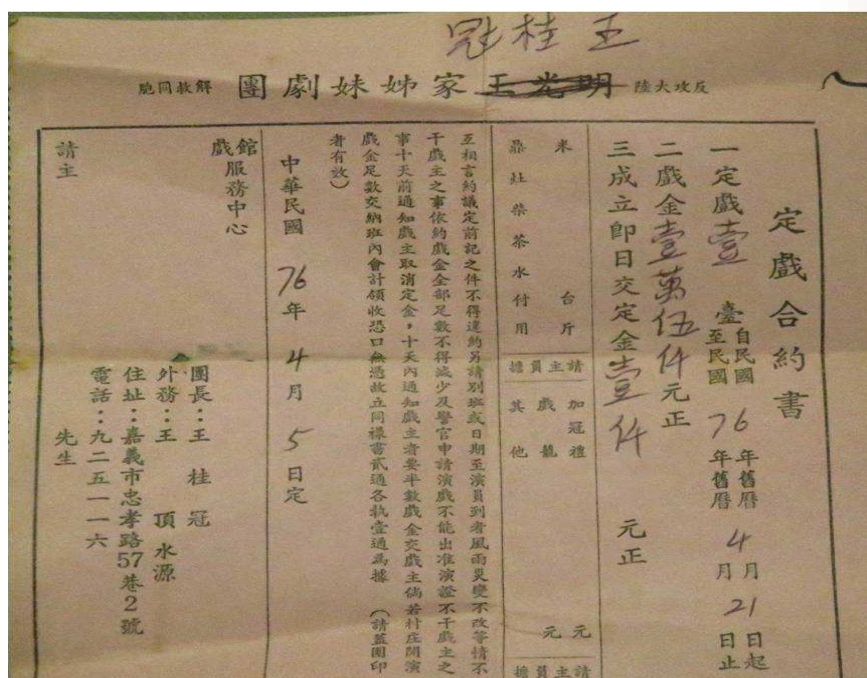 王桂冠
反攻大陸 王光明家姊妹劇團 解救同胞
定戲合約書
一定戲壹臺自民國至民國76年舊曆年舊曆4月月21日起日止
二戲金壹萬伍仟元正
三成立即日交定金壹仟元正
米 台斤
鼎灶柴茶水付用
請主員擔
加冠禮 元
戲籠 元
其他
請主員擔
互相言約議定前記之件不得違約另請別班或日期至演員到者風雨災變不改等情不
干戲主之事依約戲金全部足數不得減少及警官申請演戲不能出准演證不干戲主之
事十天前通知戲主取消定金，十天內通知戲主者要半數戲金交戲主倘若村庄開演
戲金足數交納班內會計領收恐口無憑故立同樣書貳通各執壹通為據 （請蓋團印
者有效）
中華民國 76年4月5日定
戲館服務中心
團長：王桂冠
外務：王 頂水源
住址：嘉義市忠孝路57巷2號
電話：九二五一一六
請主 先生